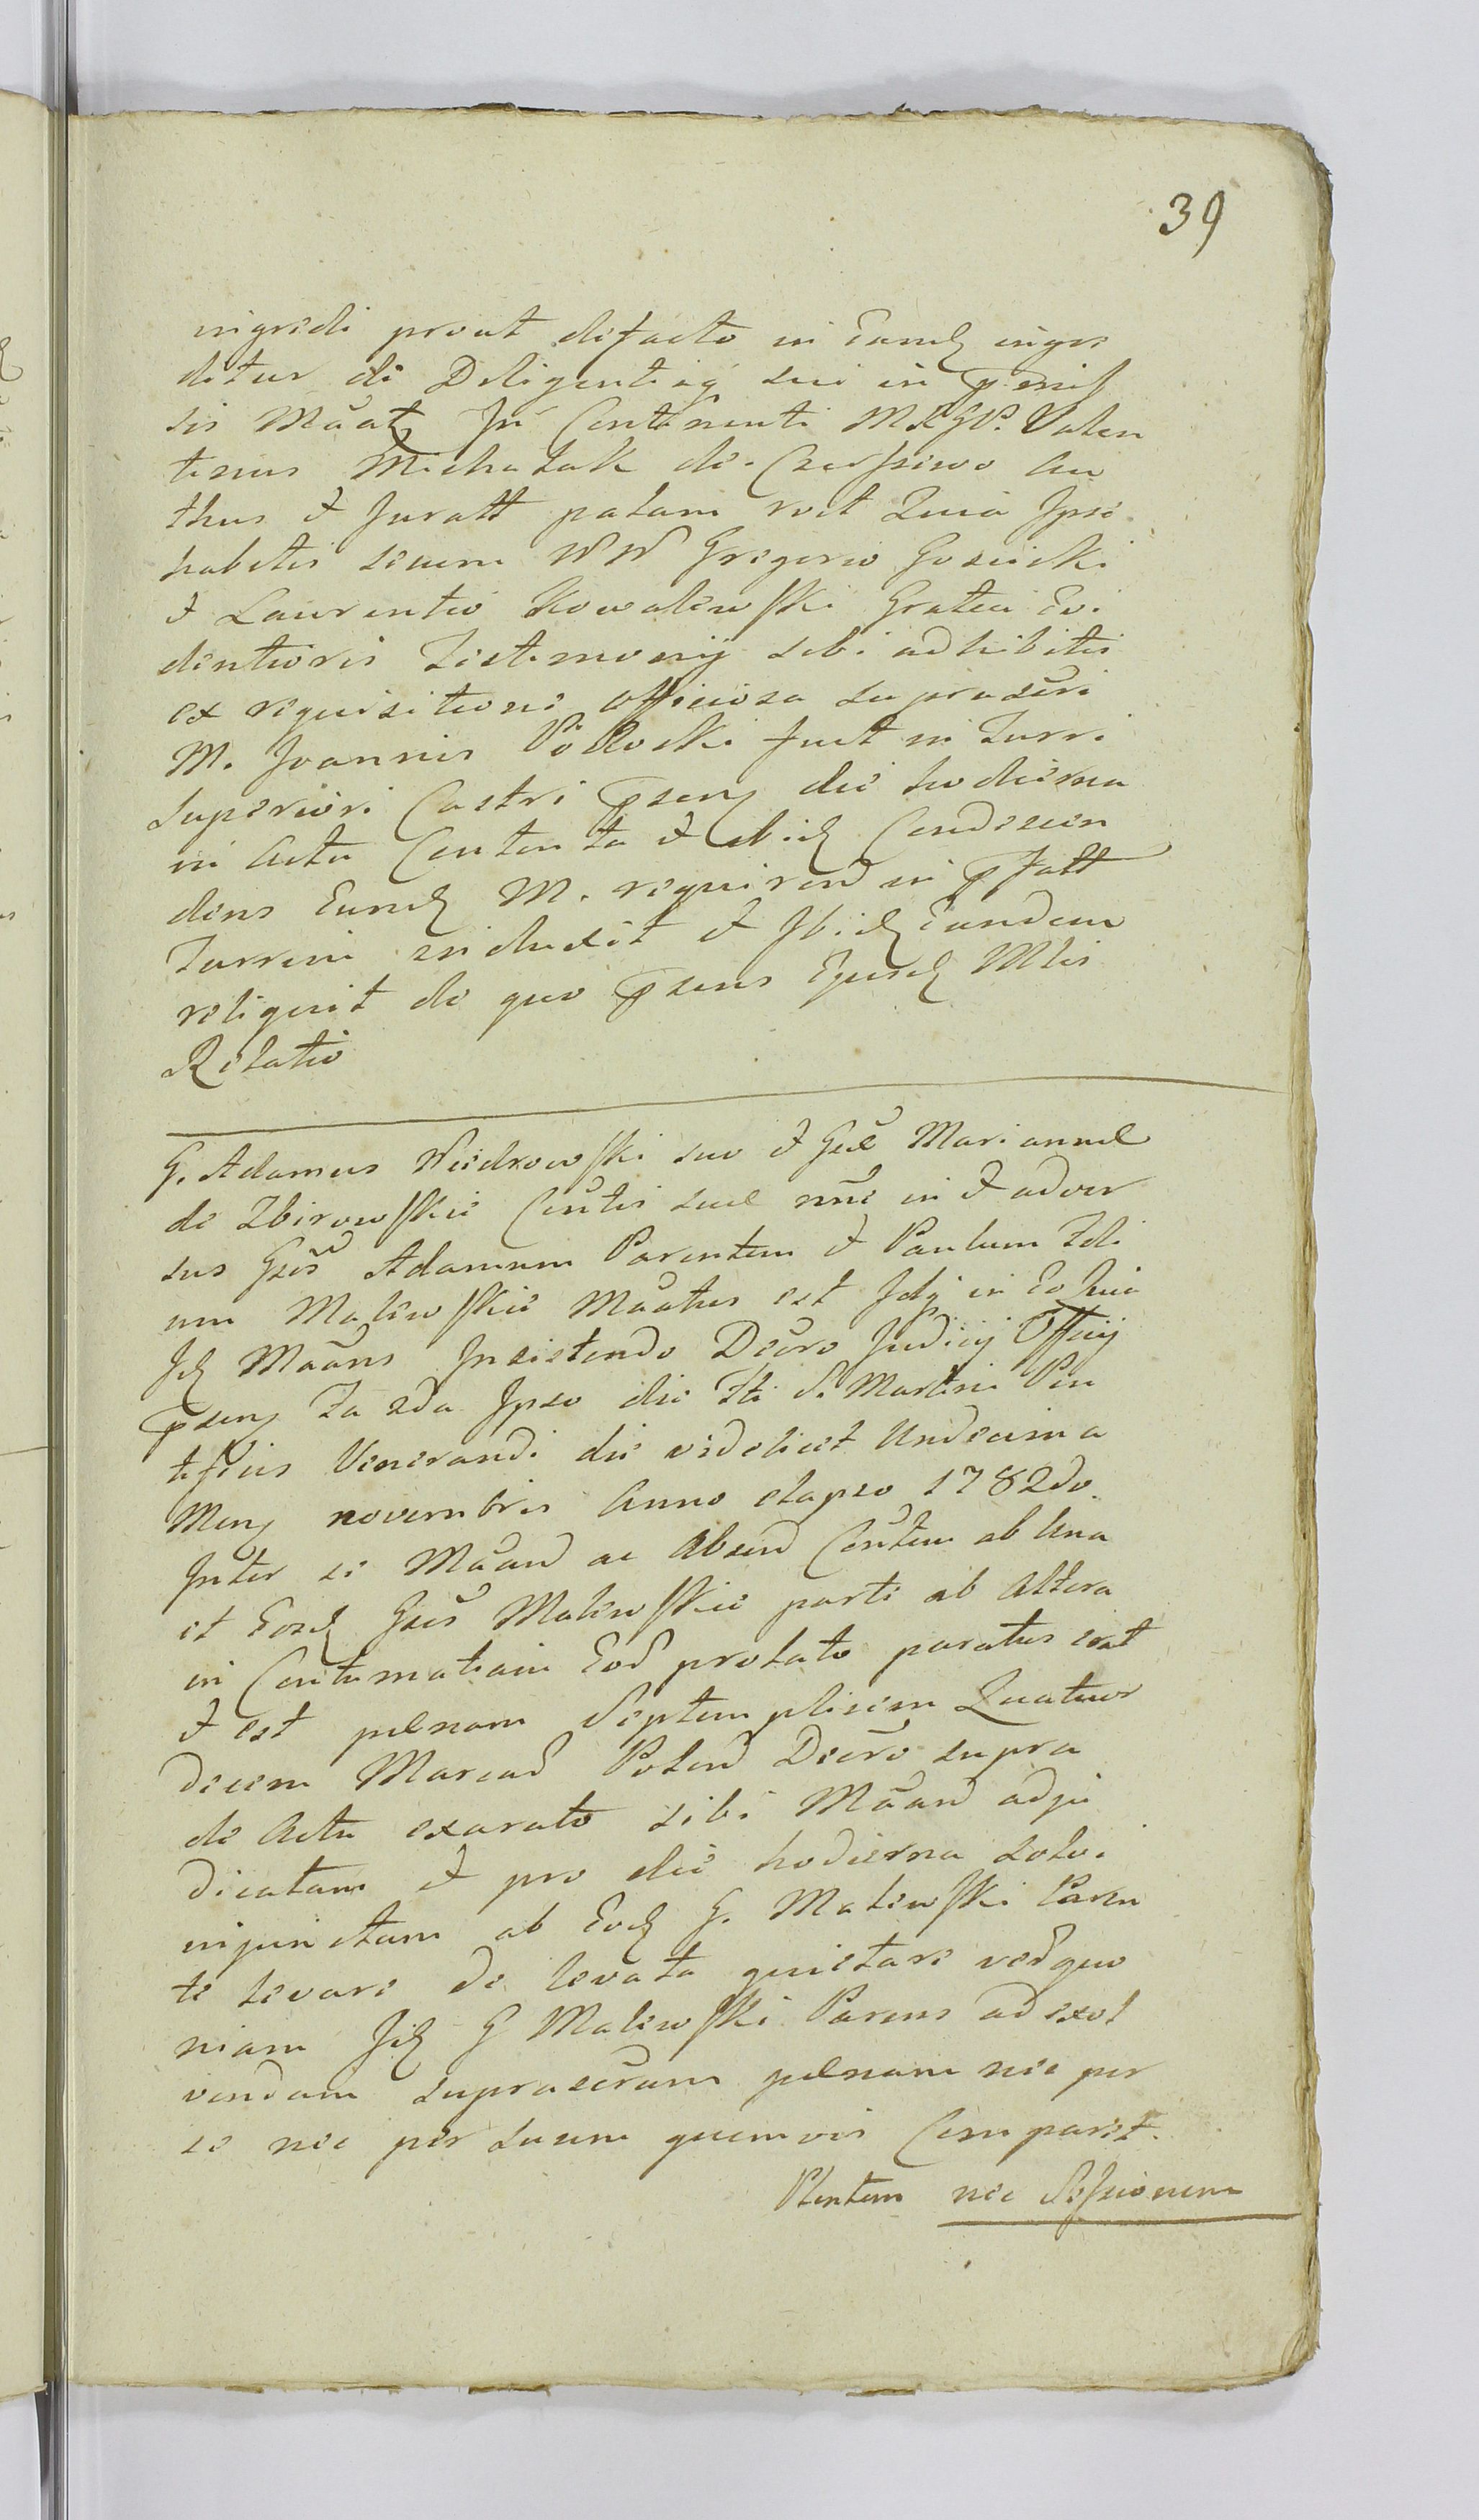 39
ingredi prout defacto in Eund ingre
ditur de Diligentiaq sui in pmis
sis Mãat In Continenti MRGP. Valen
tinus Michalak de Czerssewo au
thus & Juratt palam rect Quia Ipse
habitis secum NN Gregorio Gosiecki
& Laurentio Kowalewski Gratia Evi
dentioris Testimonij sibi adhibitis
ex requisitione officiosa suprascri
M. Joannis Pokocki fuit in Turri
Superiori Castri psens die hodierna
in Actu Contenta & ibid Condescen
dens Eund M. requirend in pfatt
Turrim induxit & Ibid Eundem
reliquit de quo psens Ejusd Mlis
Relatio
G. Adamus Wiedrowski suo & Gsae Mariannae
de Zbirowskie Cõntis suae nne in & adver
sus Gses Adamum Parentem & Paulum Fili
um Malewskie Mãatus est Idq in Eo Quia
Id Mãans Insistendo Decro Judicij Officij
psens 2a 2da Ipso die Fti S. Martini Pon
tificis Venerandi die videlicet Undecima
Mens novembris Anno elapso 1782do
Inter se Mãand ac Absend Cõntem ab Una
et Eosd Gses Malewskie parte ab Altera
in Contumatiam Eod prolato paratus erat
& est paenam Septemplicem Quatuor
decem Marcad Polond Decro supra
de Actu exarato sibi Mãand adju
dicatam & pro die hodierna solvi
injunctam ab Eod G. Malewski Paren
te levare de levata quietare vedquo
niam Id G Malewski Parens ad exol
vendam suprascram paenam nec per
se nec per suum quemvis Comparet.
Plentem nec Sessionem